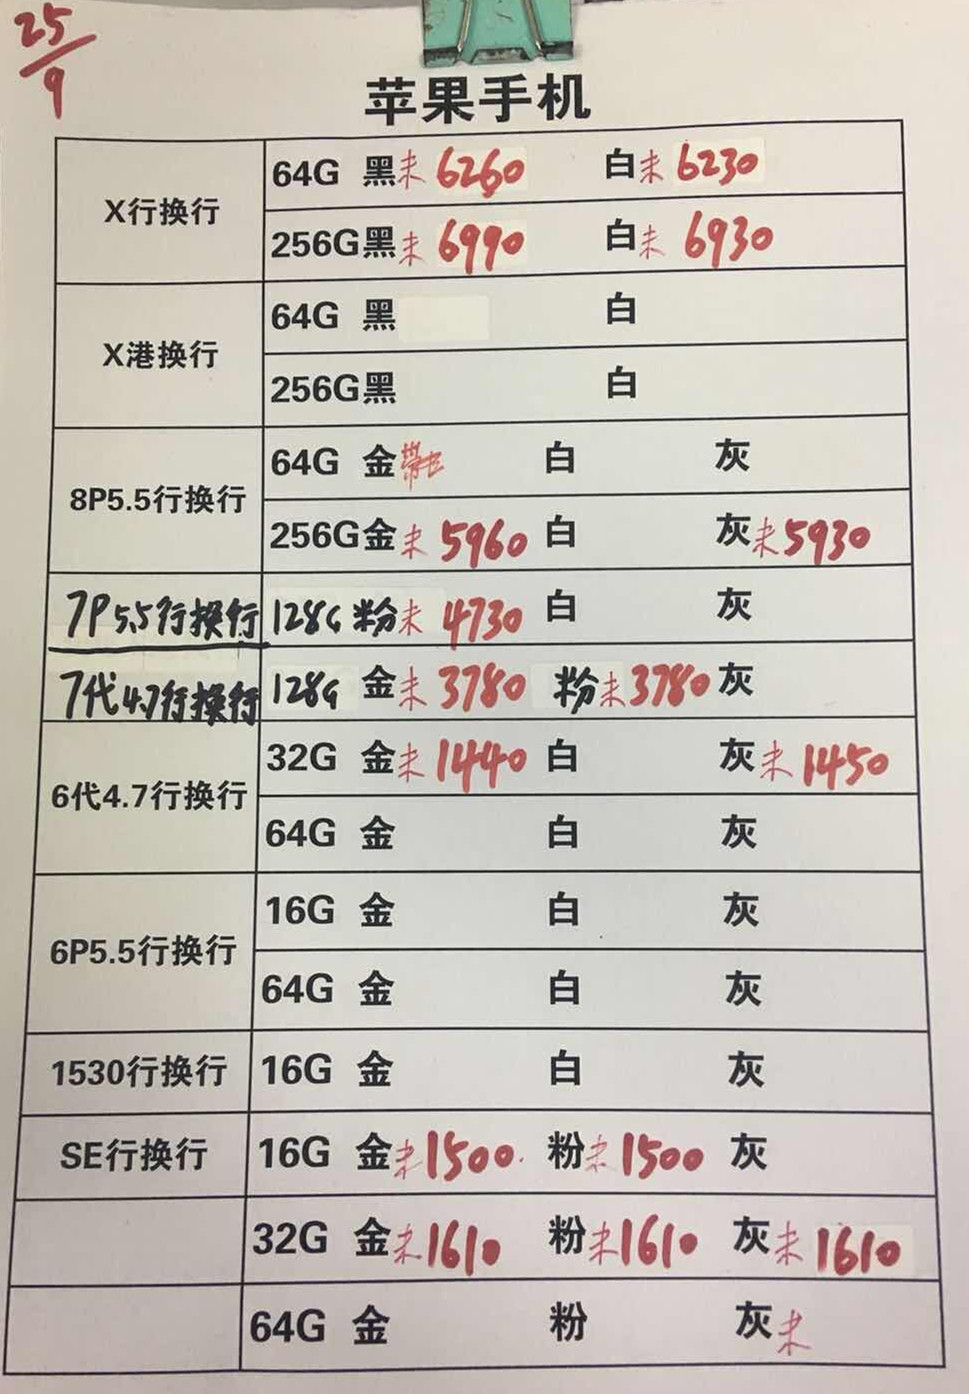 25/9
苹果手机
X行换行 64G 黑未 6260 白未 6230
256G黑未 6990 白未 6930
X港换行 64G 黑 白
256G黑 白
8P5.5行换行 64G 金 白 灰
256G金未 5960 白 灰未5930
7P5.5行换行 128G 粉未 4730 白 灰
7代4.7行换行 128G 金未 3780 粉未3780 灰
6代4.7行换行 32G 金未 1440 白 灰未 1450
64G 金 白 灰
6P5.5行换行 16G 金 白 灰
64G 金 白 灰
1530行换行 16G 金 白 灰
SE行换行 16G 金未1500 粉未1500 灰
32G 金未1610 粉未1610 灰未 1610
64G 金 粉 灰未